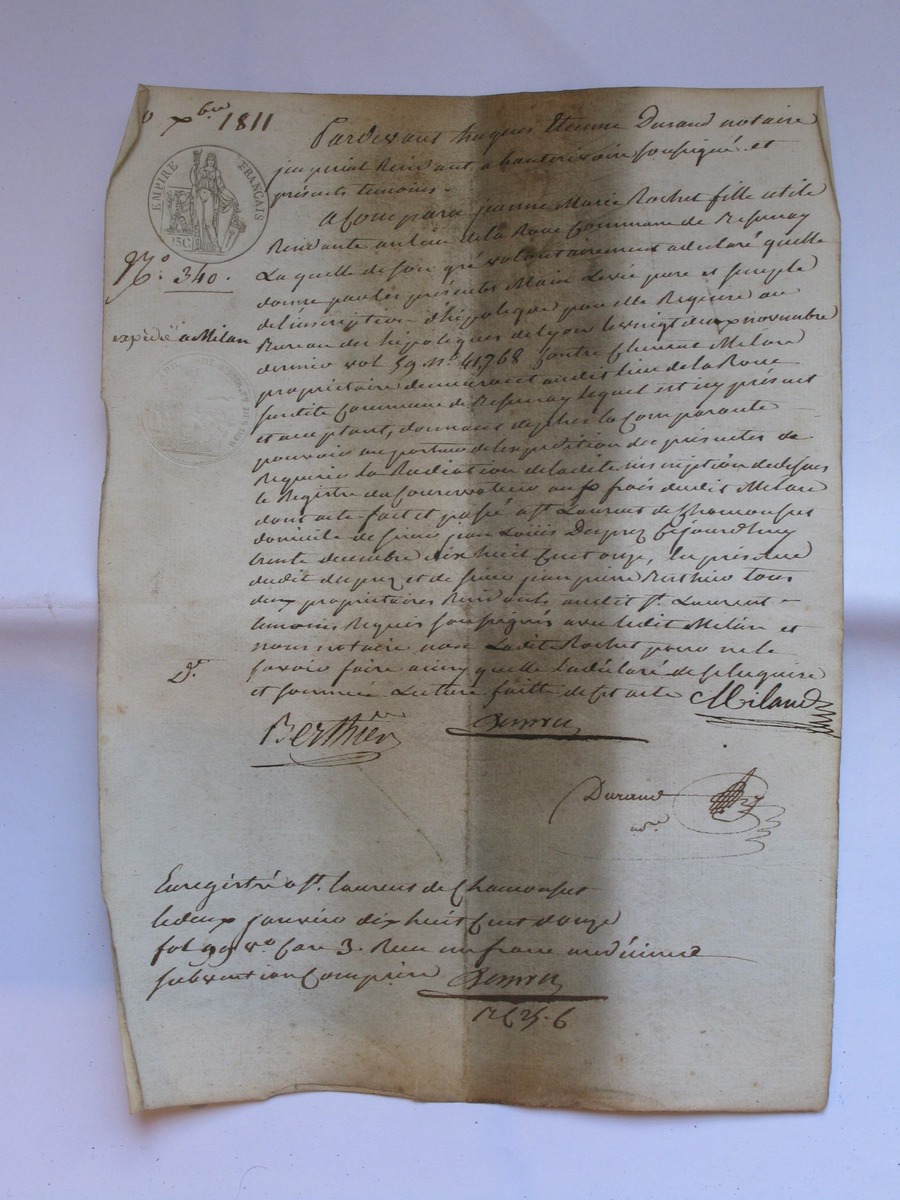 xbre 1811
Pardevant hugues Etienne Durand notaire
imperial Residant a hauterivoire soussigné et
présents temoins.
EMPIRE FRANÇAIS
75C
A Comparu jeanne Marie Rochet fille utile
Residante au lieu de la Roue Commune de Rissenay
N.o 340.
La quelle de son gré volontairement a déclaré quelle
donne par les présentes Main Levée pure et simple
de l'inscription d'hipoteque par elle Requise au
expédié a Milan
Bureau des hipoteques de Lyon le vingt deux novembre
dernier vol 59 N.o 41,768 Contre Clement Milan
propriétaire demeurant audit lieu de la Roue
susdite Commune de lequel est icy présent
et acceptant, donnant deplus la Comparante
pouvoir au porteur de l'expedition des présentes de
Requerir la Radiation de ladite inscription de dessus
le Registre du Conservateur aux frais dudit Milan
dont acte fait et passé a St. Laurent de Chamousset
domicile de sieur jean Louis Dupuy cejourdhuy
trente decembre dix huit Cent onze, En présence
dudit dupuy et de sieur jean pierre Berthier tous
deux propriétaires Residants audit St. Laurent
temoins Requis soussignés avec ledit Milan et
nous notaire non Ladite Rochet pour ne le
D.
savoir faire ainsy quelle la déclaré de ce Requise
et sommée Lecture faitte de cet acte Miland
Berthier
Durand
nore
Enregistré a St. Laurent de Chamousset
le deux janvier dix huit Cent douze
fol 99 vo Case 3. Reçu un franc un décime
subvention Comprise